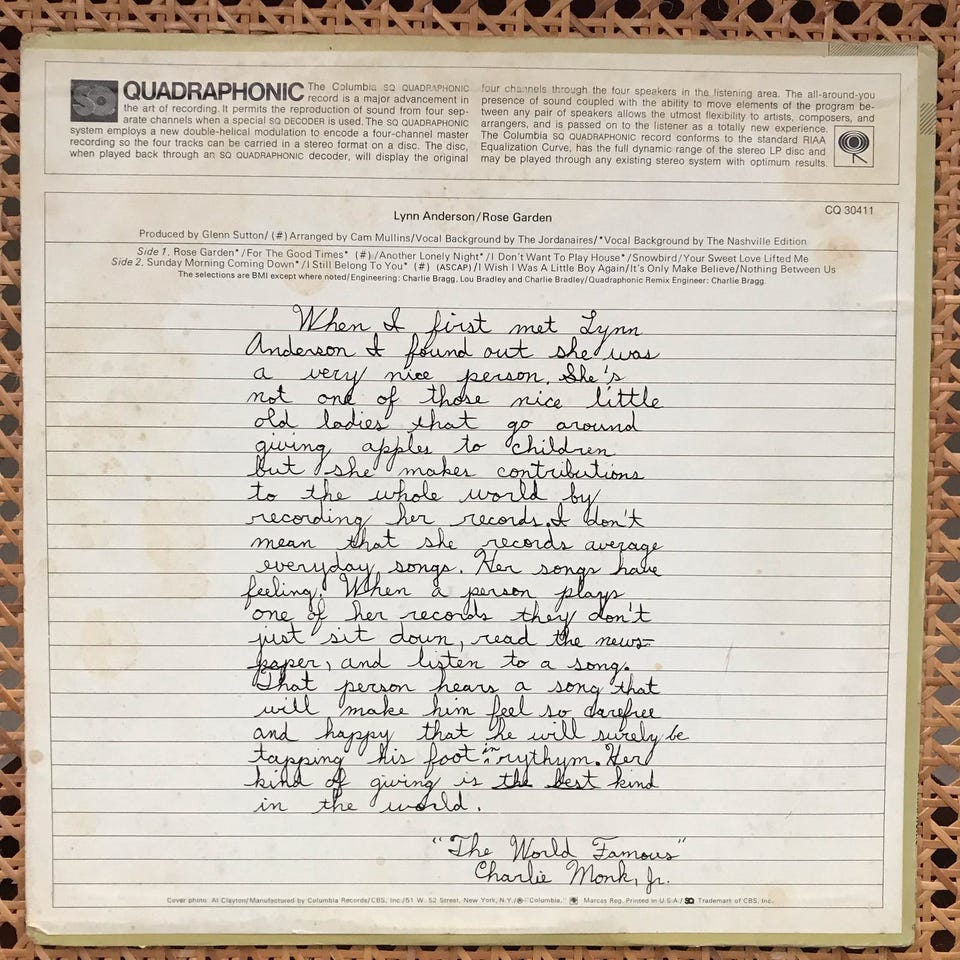 SQ QUADRAPHONIC The Columbia SQ QUADRAPHONIC
record is a major advancement in
the art of recording. It permits the reproduction of sound from four sep-
arate channels when a special SQ DECODER is used. The SQ QUADRAPHONIC
system employs a new double-helical modulation to encode a four-channel master
recording so the four tracks can be carried in a stereo format on a disc. The disc,
when played back through an SQ QUADRAPHONIC decoder, will display the original
four channels through the four speakers in the listening area. The all-around-you
presence of sound coupled with the ability to move elements of the program be-
tween any pair of speakers allows the utmost flexibility to artists, composers, and
arrangers, and is passed on to the listener as a totally new experience.
The Columbia SQ QUADRAPHONIC record conforms to the standard RIAA
Equalization Curve, has the full dynamic range of the stereo LP disc and
may be played through any existing stereo system with optimum results.
CQ 30411
Lynn Anderson/Rose Garden
Produced by Glenn Sutton/(#)Arranged by Cam Mullins/Vocal Background by The Jordanaires/*Vocal Background by The Nashville Edition
Side 1. Rose Garden*/For The Good Times* (#)/Another Lonely Night*/I Don't Want To Play House*/Snowbird/Your Sweet Love Lifted Me
Side 2. Sunday Morning Coming Down*/I Still Belong To You* (#) (ASCAP)/I Wish I Was A Little Boy Again/It's Only Make Believe/Nothing Between Us
The selections are BMI except where noted/Engineering: Charlie Bragg, Lou Bradley and Charlie Bradley/Quadraphonic Remix Engineer: Charlie Bragg.
When I first met Lynn
Anderson I found out she was
a very nice person. She's
not one of those nice little
old ladies that go around
giving apples to children
but she makes contributions
to the whole world by
recording her records. I don't
mean that she records average
everyday songs. Her songs have
feeling. When a person plays
one of her records they don't
just sit down, read the news-
paper, and listen to a song.
That person hears a song that
will make him feel so carefree
and happy that he will surely be
tapping his foot in rythym. Her
kind of giving is the best kind
in the world.
"The World Famous"
Charlie Monk, Jr.
Cover photo: Al Clayton/Manufactured by Columbia Records/CBS, Inc./51 W. 52 Street, New York, N.Y./® "Columbia," Marcas Reg. Printed in U.S.A./SQ Trademark of CBS, Inc.